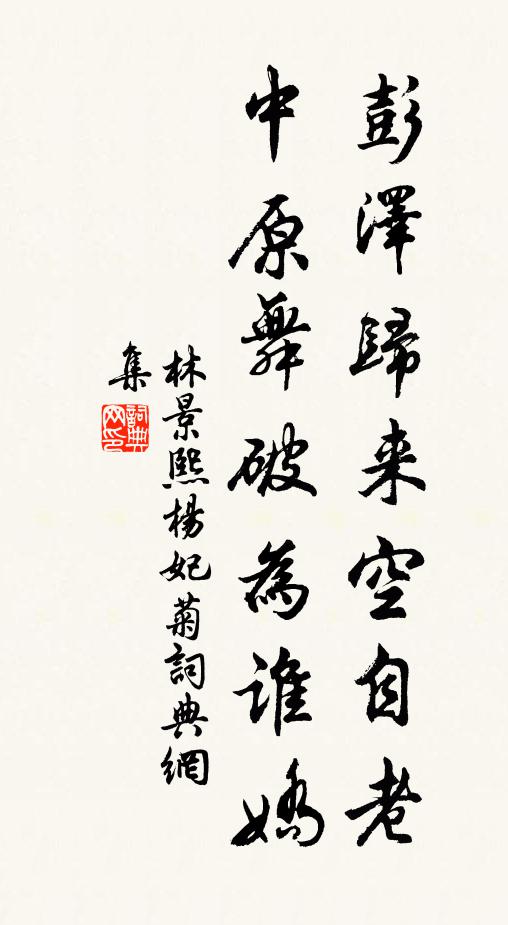 彭澤歸来空自老
中原舞破為誰嬌
林景熙楊妃菊詞典網
集
詞典网印